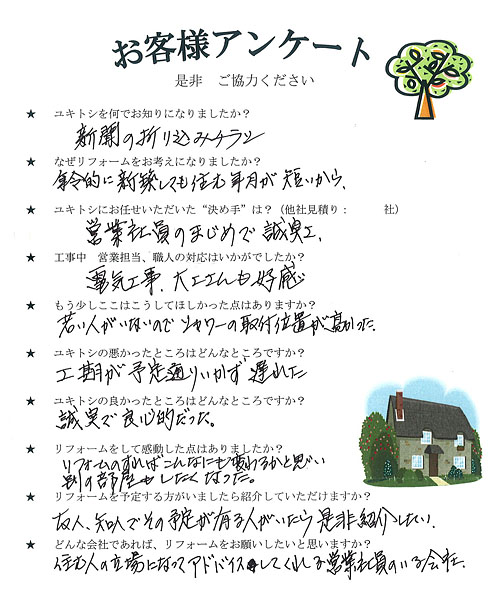 お客様アンケート
是非 ご協力ください
★ ユキトシを何でお知りになりましたか？
新聞の折り込みチラシ
★ なぜリフォームをお考えになりましたか？
年令的に新築しても住む年月が短いから、
★ ユキトシにお任せいただいた“決め手”は？（他社見積り： 社）
営業社員のまじめで誠実さ、
★ 工事中 営業担当、職人の対応はいかがでしたか？
電気工事、大工さんも好感
★ もう少しここはこうしてほしかった点はありますか？
若い人がいないのでシャワーの取付位置が高かった.
★ ユキトシの悪かったところはどんなところですか？
工期が予定通りいかず遅れた
★ ユキトシの良かったところはどんなところですか？
誠実で良心的だった。
★ リフォームをして感動した点はありましたか？
リフォームのすればこんなにも変わるかと思い
別の部屋もしたくなった。
★ リフォームを予定する方がいましたら紹介していただけますか？
友人、知人でその予定が有る人がいたら是非紹介したい.
★ どんな会社であれば、リフォームをお願いしたいと思いますか？
住む人の立場になってアドバイスしてくれる営業社員のいる会社.